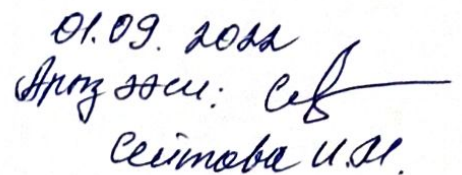 01.09.2022
Арыз ээси:
Сеитова И.И.